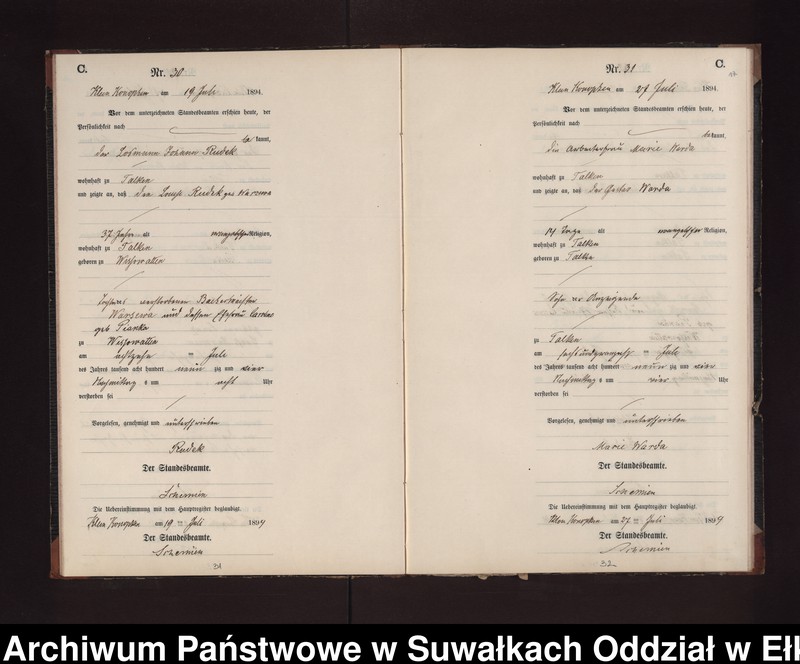 C.
Nr. 30
Klein Konopken am 19 Juli 1894.
Vor dem unterzeichneten Standesbeamten erschien heute, der
Persönlichkeit nach
bekannt,
der Losmann Johann Rudek
wohnhaft zu Talken
und zeigte an, daß
Rudek geb
37 Jahre alt evangelischer Religion,
wohnhaft zu Talken
geboren zu Wissowatten
verstorbenen
und dessen Ehefrau
geb Pianka
zu Wissowatten
am achtzehn ten Juli
des Jahres tausend acht hundert neun zig und vier
Nachmittag s um acht Uhr
verstorben sei
Vorgelesen, genehmigt und unterschrieben
Rudek
Der Standesbeamte.
Die Uebereinstimmung mit dem Hauptregister beglaubigt.
Klein Konopken am 19 ten Juli 1894
Der Standesbeamte.
31
C.
Nr. 31
Klein Konopken am 27 Juli 1894.
Vor dem unterzeichneten Standesbeamten erschien heute, der
Persönlichkeit nach
bekannt,
die Arbeiterfrau Marie Warda
wohnhaft zu Talken
und zeigte an, daß der Gustav Warda
14 Tage alt evangelischer Religion,
wohnhaft zu Talken
geboren zu Talken
Sohn der Anzeigende
zu Talken
am sechsundzwanzigst ten Juli
des Jahres tausend acht hundert neun zig und vier
Nachmittag s um vier Uhr
verstorben sei
Vorgelesen, genehmigt und unterschrieben
Marie Warda
Der Standesbeamte.
Die Uebereinstimmung mit dem Hauptregister beglaubigt.
Klein Konopken am 27 ten Juli 1894
Der Standesbeamte.
32
Archiwum Państwowe w Suwałkach Oddział w Ełk